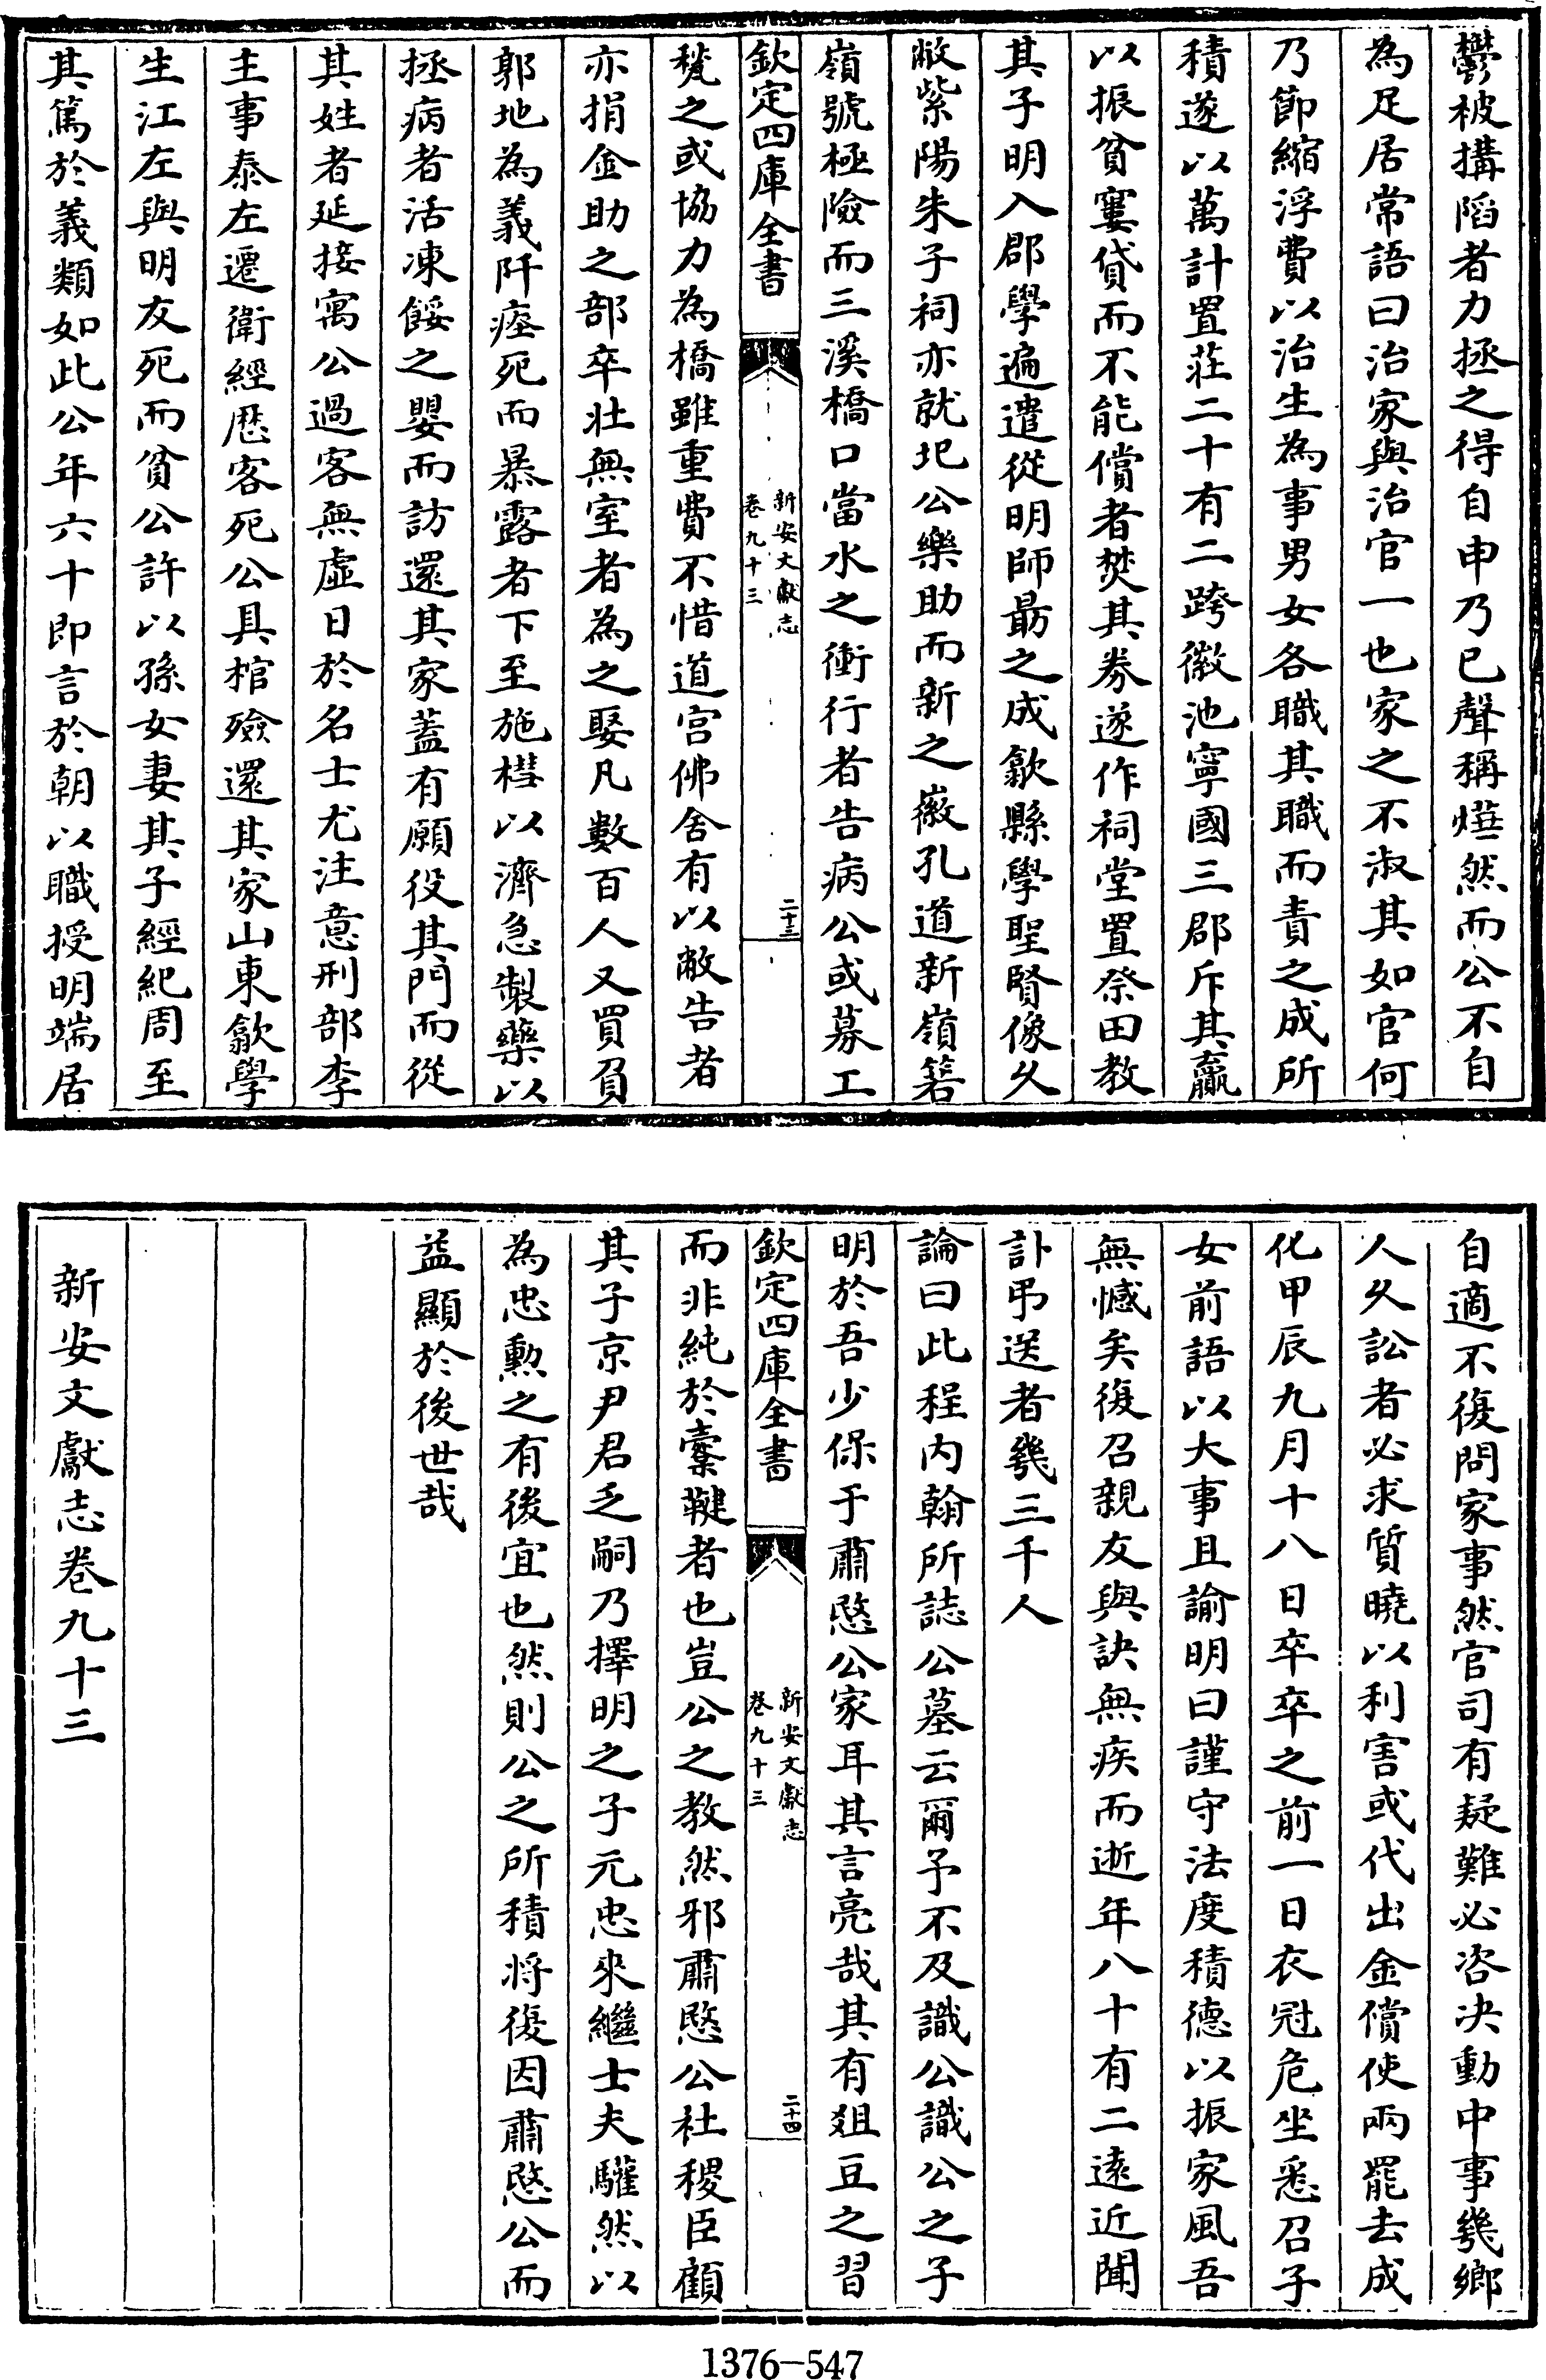 鬱被搆陷者力拯之得自申乃已聲稱燁然而公不自
為足居常語曰治家與治官一也家之不淑其如官何
乃節縮浮費以治生為事男女各職其職而責之成所
積遂以萬計置莊二十有二跨徽池寧國三郡斥其贏
以振貧窶貸而不能償者焚其券遂作祠堂置祭田教
其子明入郡學遍遣從明師最之成歙縣學聖賢像久
敝紫陽朱子祠亦就圮公樂助而新之徽孔道新嶺箬
嶺號極險而三溪橋口當水之衝行者告病公或募工
欽定四庫全書
新安文獻志
卷九十三
二十三
甃之或協力為橋雖重費不惜道宫佛舍有以敝告者
亦捐金助之部卒壯無室者為之娶凡數百人又買負
郭地為義阡瘞死而暴露者下至施槥以濟急製藥以
拯病者活凍餒之嬰而訪還其家蓋有願役其門而從
其姓者延接寓公過客無虛日於名士尤注意刑部李
主事泰左遷衛經歷客死公具棺殮還其家山東歙學
生江左與明友死而貧公許以孫女妻其子經紀周至
其篤於義類如此公年六十即言於朝以職授明端居
自適不復問家事然官司有疑難必咨决動中事幾鄉
人久訟者必求質曉以利害或代出金償使兩罷去成
化甲辰九月十八日卒卒之前一日衣冠危坐悉召子
女前語以大事且諭明曰謹守法度積德以振家風吾
無憾矣復召親友與訣無疾而逝年八十有二遠近聞
訃弔送者幾三千人
論曰此程内翰所誌公墓云爾予不及識公識公之子
明於吾少保于肅愍公家耳其言亮哉其有爼豆之習
欽定四庫全書
新安文獻志
卷九十三
二十四
而非純於櫜鞬者也豈公之教然邪肅愍公社稷臣顧
其子京尹君乏嗣乃擇明之子元忠來繼士夫驩然以
為忠勲之有後宜也然則公之所積将復因肅愍公而
益顯於後世哉
新安文獻志卷九十三
1376-547